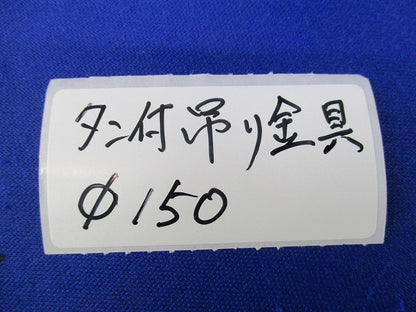 タン付吊り金具
φ150